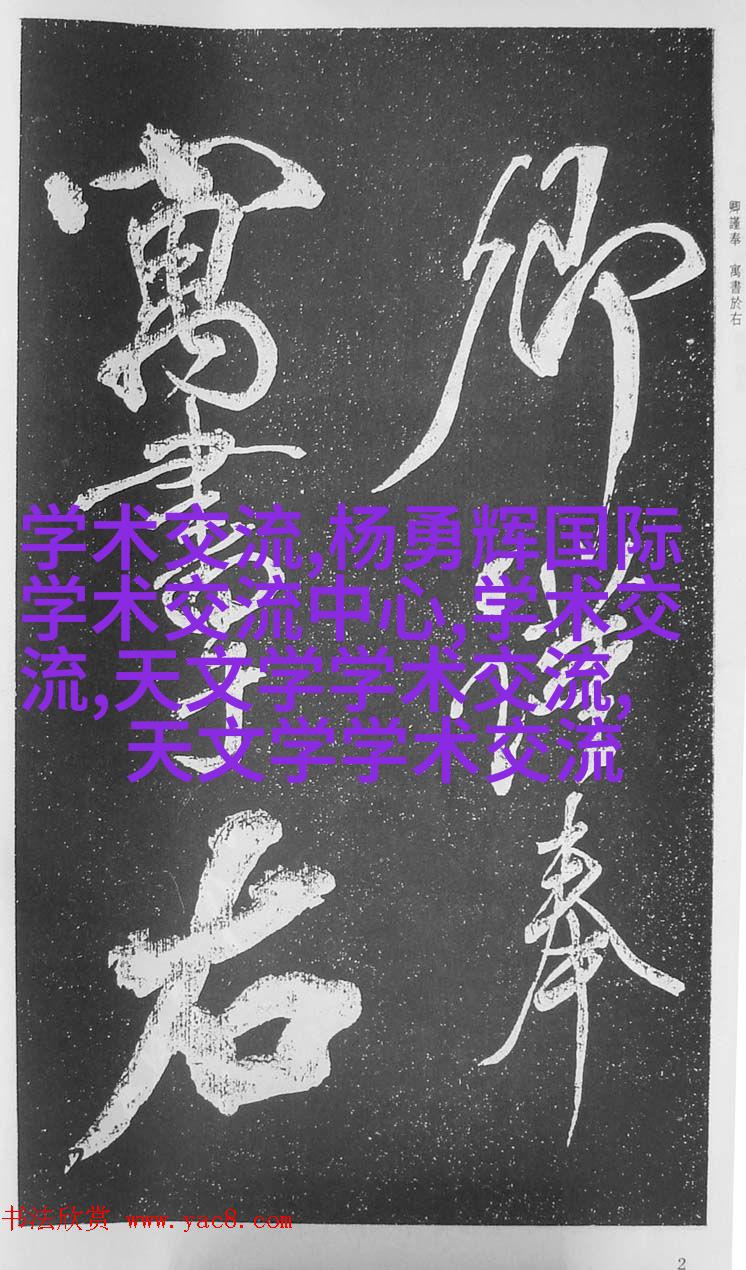 卿謹奉
寓書於右
卿謹奉 寓書於右
学术交流,杨勇辉国际
学术交流中心,学术交
流,天文学学术交流,
天文学学术交流
书法欣赏 www.yac8.com
2